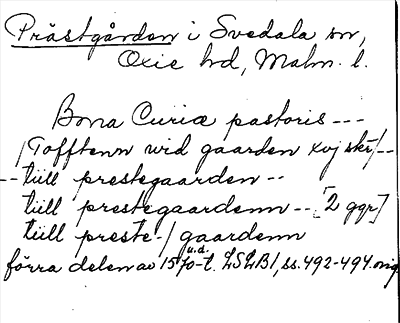 Prästgården i Svedala sn,
Oxie hd, Malm. l.
Bona Curiæ pastoris ---
/Tofftenn wid gaarden xvj skr/--
-- tiill prestegaarden --
tiill prestegaardenn -- [2 ggr]
tiill preste-/gaardenn
förra delen av 1570-t. u.d. LSLB1, ss. 492-494. orig